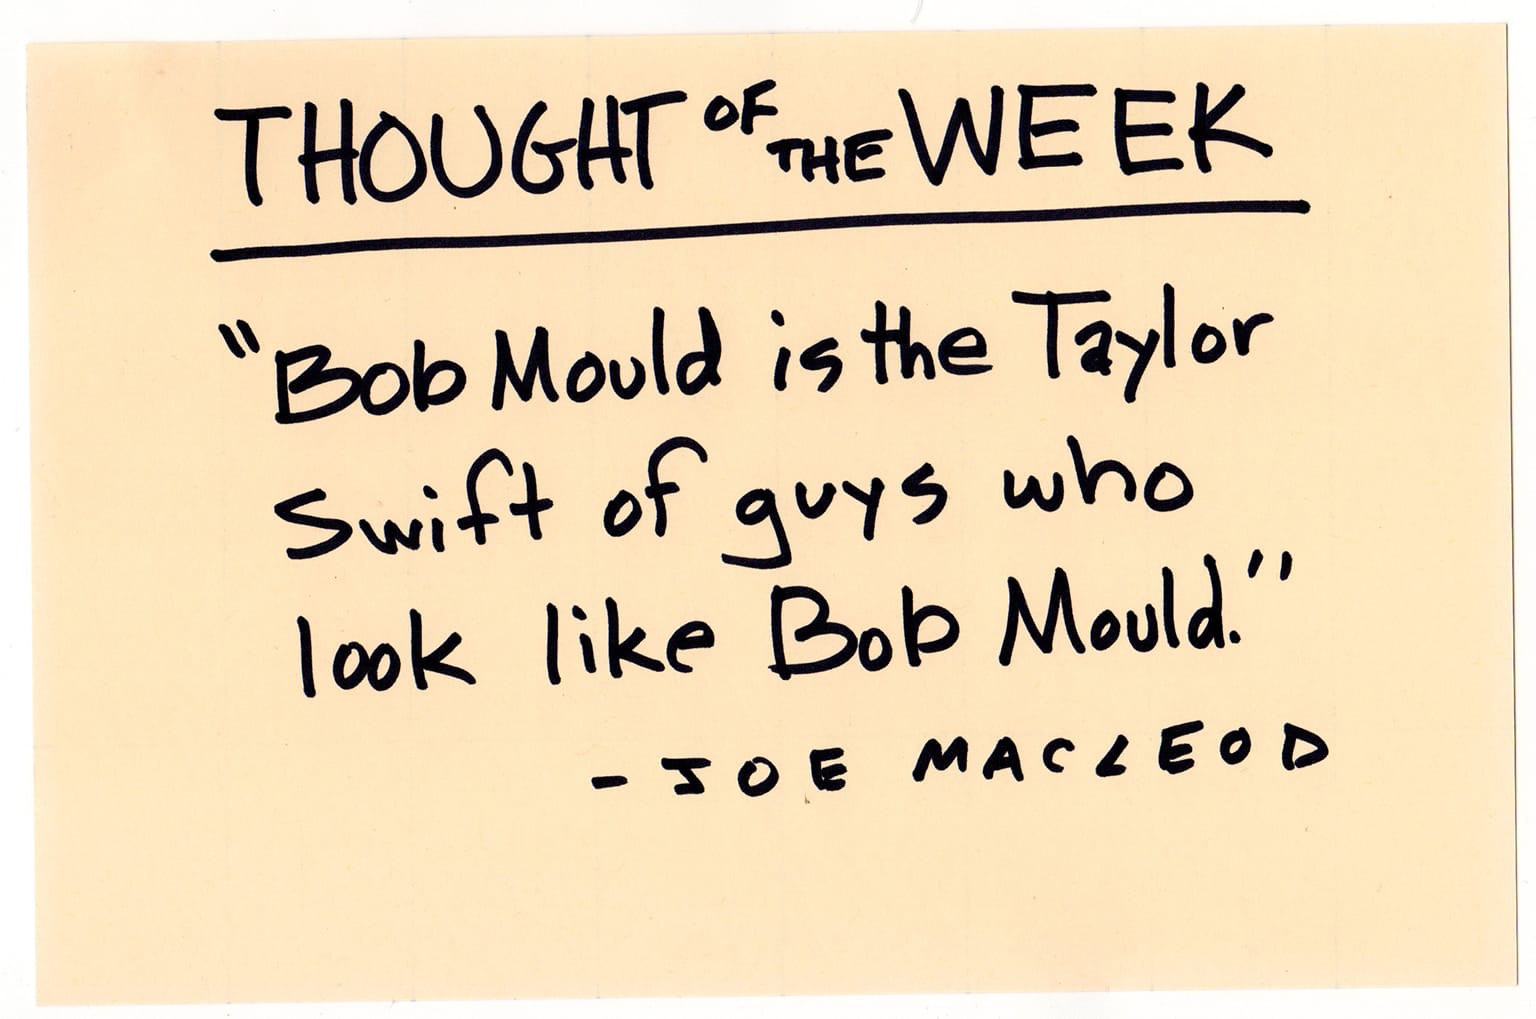 THOUGHT OF THE WEEK
"Bob Mould is the Taylor
Swift of guys who
look like Bob Mould."
- JOE MACLEOD